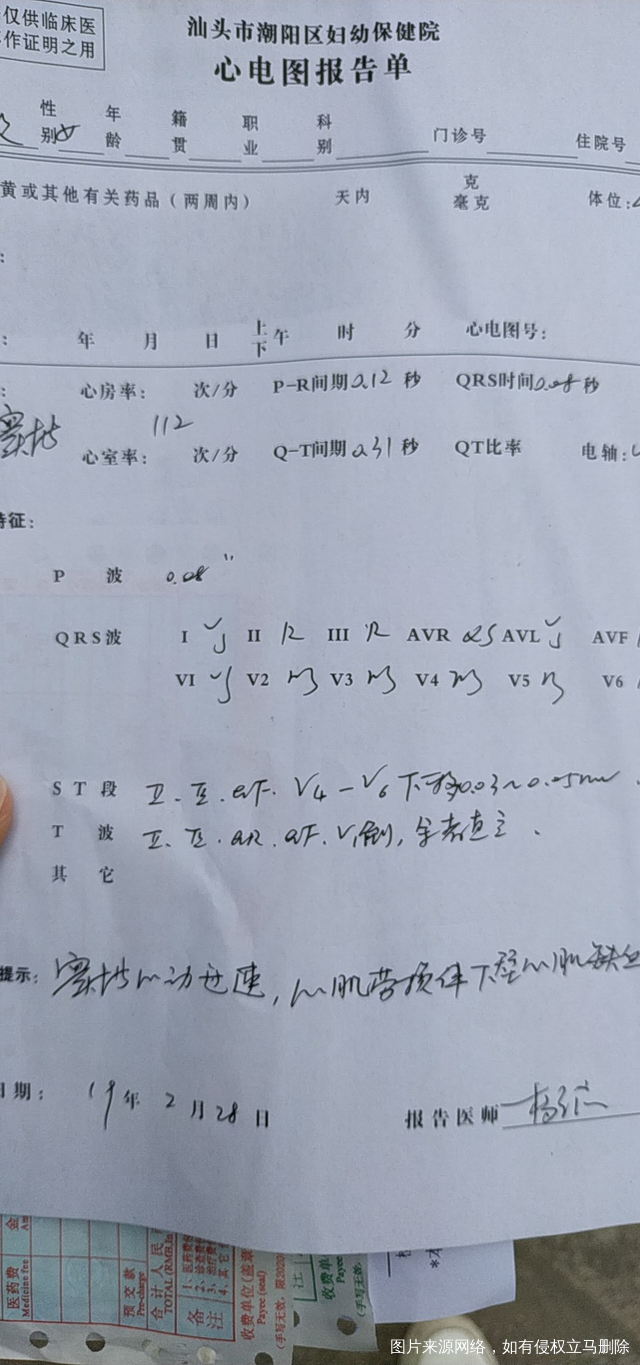 仅供临床医
作证明之用
汕头市潮阳区妇幼保健院
心电图报告单
性别 女 年龄 籍贯 职业 科别 门诊号 住院号
黄或其他有关药品（两周内） 天内 克 毫克 体位:
:
: 年 月 日 上下午 时 分 心电图号:
: 心房率: 次/分 P-R间期 0.12 秒 QRS时间 0.08 秒
窦性 心室率: 112 次/分 Q-T间期 0.31 秒 QT比率 电轴:
特征:
P 波 0.08"
QRS波 I II R III R AVR QS AVL AVF
V1 V2 V3 V4 V5 V6
ST段 Ⅱ、Ⅲ、aVF、V4-V6 下移0.03~0.05mv、
T 波 Ⅱ、Ⅲ、aVR、aVF、V1倒，余者直立、
其它
提示: 窦性心动过速，心肌劳损伴下壁心肌缺血
日期: 19年2月28日 报告医师
医药费
Medicine fee
金
预交款
Pre-charge
合计人民
TOTAL (RMB
备注
收费单位(盖章
Payee (seal)
(手写无效，
注
收费单
Payee
(手写无效，
图片来源网络，如有侵权立马删除